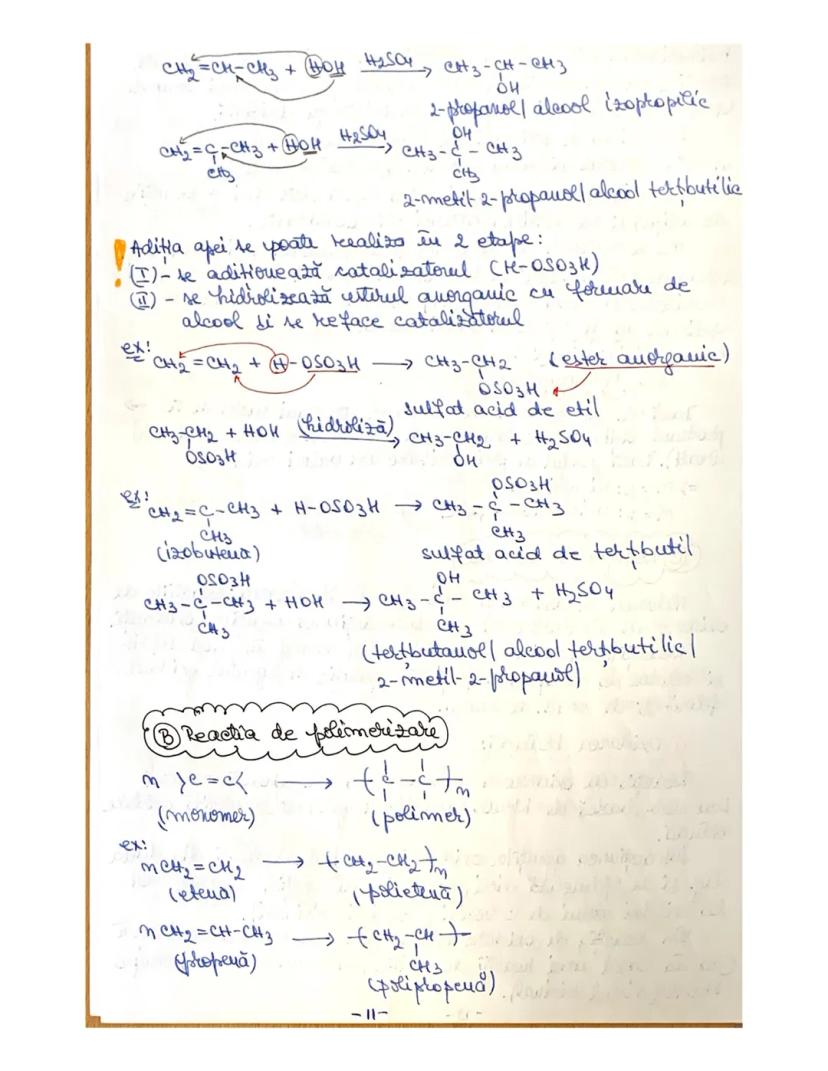 CH2=CH-CH3 + HOH H2SO4 → CH3-CH-CH3
OH
2-propanol/ alcool izopropilic
OH
CH2=C-CH3 + HOH H2SO4 → CH3-C-CH3
CH3 CH3
2-metil-2-propanol/ alcool terțbutilic
! Adiția apei se poate realiza în 2 etape:
(I) - se adiționează catalizatorul (H-OSO3H)
(II) - se hidrolizează esterul anorganic cu formare de
alcool și se reface catalizatorul
ex:
CH2=CH2 + H-OSO3H → CH3-CH2 (ester anorganic)
OSO3H
sulfat acid de etil
CH3-CH2 + HOH (hidroliză) → CH3-CH2 + H2SO4
OSO3H OH
ex:
OSO3H
CH2=C-CH3 + H-OSO3H → CH3-C-CH3
CH3 CH3
(izobutena) sulfat acid de terțbutil
OSO3H OH
CH3-C-CH3 + HOH → CH3-C-CH3 + H2SO4
CH3 CH3
(terțbutanol/ alcool terțbutilic/
2-metil-2-propanol)
(B) Reacția de polimerizare
n >C=C< → -(-C-C-)-n
(monomer) (polimer)
ex:
nCH2=CH2 → -(-CH2-CH2-)-n
(etenă) (polietenă)
nCH2=CH-CH3 → -(-CH2-CH-)-
CH3
(propenă) (polipropenă)
-11-